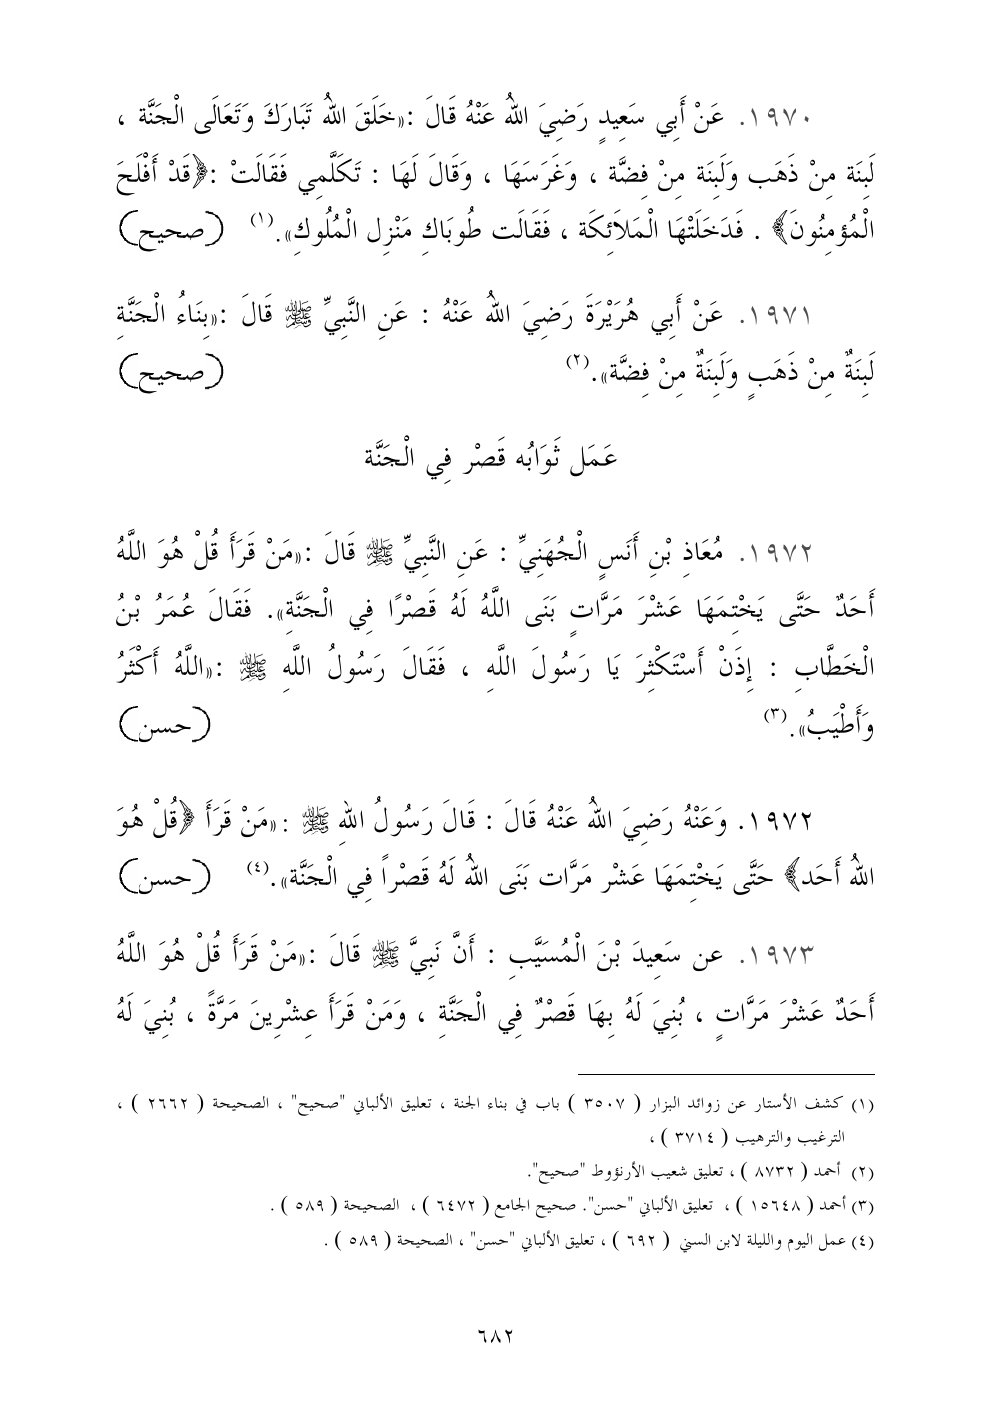 ١٩٧٠. عَنْ أَبِي سَعِيدٍ رَضِيَ اللهُ عَنْهُ قَالَ :«خَلَقَ اللهُ تَبَارَكَ وَتَعَالَى الْجَنَّة ،
لَبِنَة مِنْ ذَهَب وَلَبِنَة مِنْ فِضَّة ، وَغَرَسَهَا ، وَقَالَ لَهَا : تَكَلَّمِي فَقَالَتْ :﴿قَدْ أَفْلَحَ
الْمُؤمِنُونَ﴾ . فَدَخَلَتْهَا الْمَلاَئِكَة ، فَقَالَت طُوبَاكِ مَنْزِل الْمُلُوكِ».(١) (صحيح)
١٩٧١. عَنْ أَبِي هُرَيْرَةَ رَضِيَ اللهُ عَنْهُ : عَنِ النَّبِيِّ ﷺ قَالَ :«بِنَاءُ الْجَنَّةِ
لَبِنَةٌ مِنْ ذَهَبٍ وَلَبِنَةٌ مِنْ فِضَّة».(٢) (صحيح)
عَمَل ثَوَابُه قَصْر فِي الْجَنَّة
١٩٧٢. مُعَاذِ بْنِ أَنَسٍ الْجُهَنِيِّ : عَنِ النَّبِيِّ ﷺ قَالَ :«مَنْ قَرَأَ قُلْ هُوَ اللَّهُ
أَحَدٌ حَتَّى يَخْتِمَهَا عَشْرَ مَرَّاتٍ بَنَى اللَّهُ لَهُ قَصْرًا فِي الْجَنَّةِ». فَقَالَ عُمَرُ بْنُ
الْخَطَّابِ : إِذَنْ أَسْتَكْثِرَ يَا رَسُولَ اللَّهِ ، فَقَالَ رَسُولُ اللَّهِ ﷺ :«اللَّهُ أَكْثَرُ
وَأَطْيَبُ».(٣) (حسن)
١٩٧٢. وَعَنْهُ رَضِيَ اللهُ عَنْهُ قَالَ : قَالَ رَسُولُ اللهِ ﷺ :«مَنْ قَرَأَ ﴿قُلْ هُوَ
اللهُ أَحَد﴾ حَتَّى يَخْتِمَهَا عَشْر مَرَّات بَنَى اللهُ لَهُ قَصْراً فِي الْجَنَّة».(٤) (حسن)
١٩٧٣. عن سَعِيدَ بْنَ الْمُسَيَّبِ : أَنَّ نَبِيَّ ﷺ قَالَ :«مَنْ قَرَأَ قُلْ هُوَ اللَّهُ
أَحَدٌ عَشْرَ مَرَّاتٍ ، بُنِيَ لَهُ بِهَا قَصْرٌ فِي الْجَنَّةِ ، وَمَنْ قَرَأَ عِشْرِينَ مَرَّةً ، بُنِيَ لَهُ
(١) كشف الأستار عن زوائد البزار ( ٣٥٠٧ ) باب في بناء الجنة ، تعليق الألباني "صحيح" ، الصحيحة ( ٢٦٦٢ ) ،
الترغيب والترهيب ( ٣٧١٤ ) ،
(٢) أحمد ( ٨٧٣٢ ) ، تعليق شعيب الأرنؤوط "صحيح".
(٣) أحمد ( ١٥٦٤٨ ) ، تعليق الألباني "حسن". صحيح الجامع ( ٦٤٧٢ ) ، الصحيحة ( ٥٨٩ ) .
(٤) عمل اليوم والليلة لابن السني ( ٦٩٢ ) ، تعليق الألباني "حسن" ، الصحيحة ( ٥٨٩ ) .
٦٨٢